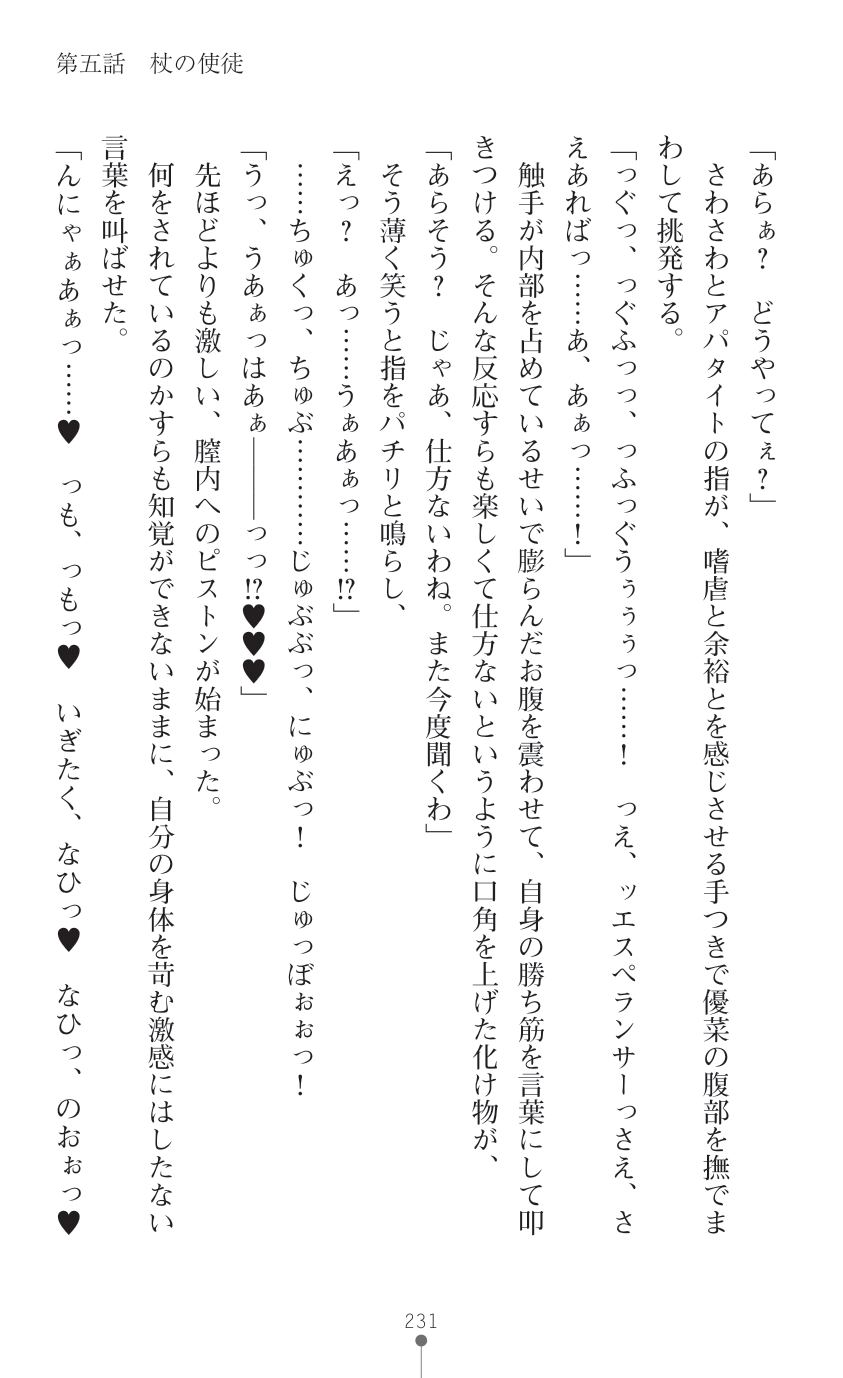 第五話　杖の使徒
「あらぁ？　どうやってぇ？」
　さわさわとアパタイトの指が、嗜虐と余裕とを感じさせる手つきで優菜の腹部を撫でま
わして挑発する。
「っぐっ、っぐふっっ、っふっぐうぅぅぅっ……！　っえ、ッエスペランサーっさえ、さ
えあればっ……あ、あぁっ……！」
　触手が内部を占めているせいで膨らんだお腹を震わせて、自身の勝ち筋を言葉にして叩
きつける。そんな反応すらも楽しくて仕方ないというように口角を上げた化け物が、
「あらそう？　じゃあ、仕方ないわね。また今度聞くわ」
　そう薄く笑うと指をパチリと鳴らし、
「えっ？　あっ……うぁあぁっ……!?」
　……ちゅくっ、ちゅぶ…………じゅぶぶっ、にゅぶっ！　じゅっぼぉぉっ！
「うっ、うあぁっはあぁ――っっ!?♥♥♥」
　先ほどよりも激しい、膣内へのピストンが始まった。
　何をされているのかすらも知覚ができないままに、自分の身体を苛む激感にはしたない
言葉を叫ばせた。
「んにゃぁあぁっ……♥　っも、っもっ♥　いぎたく、なひっ♥　なひっ、のおぉっ♥
231